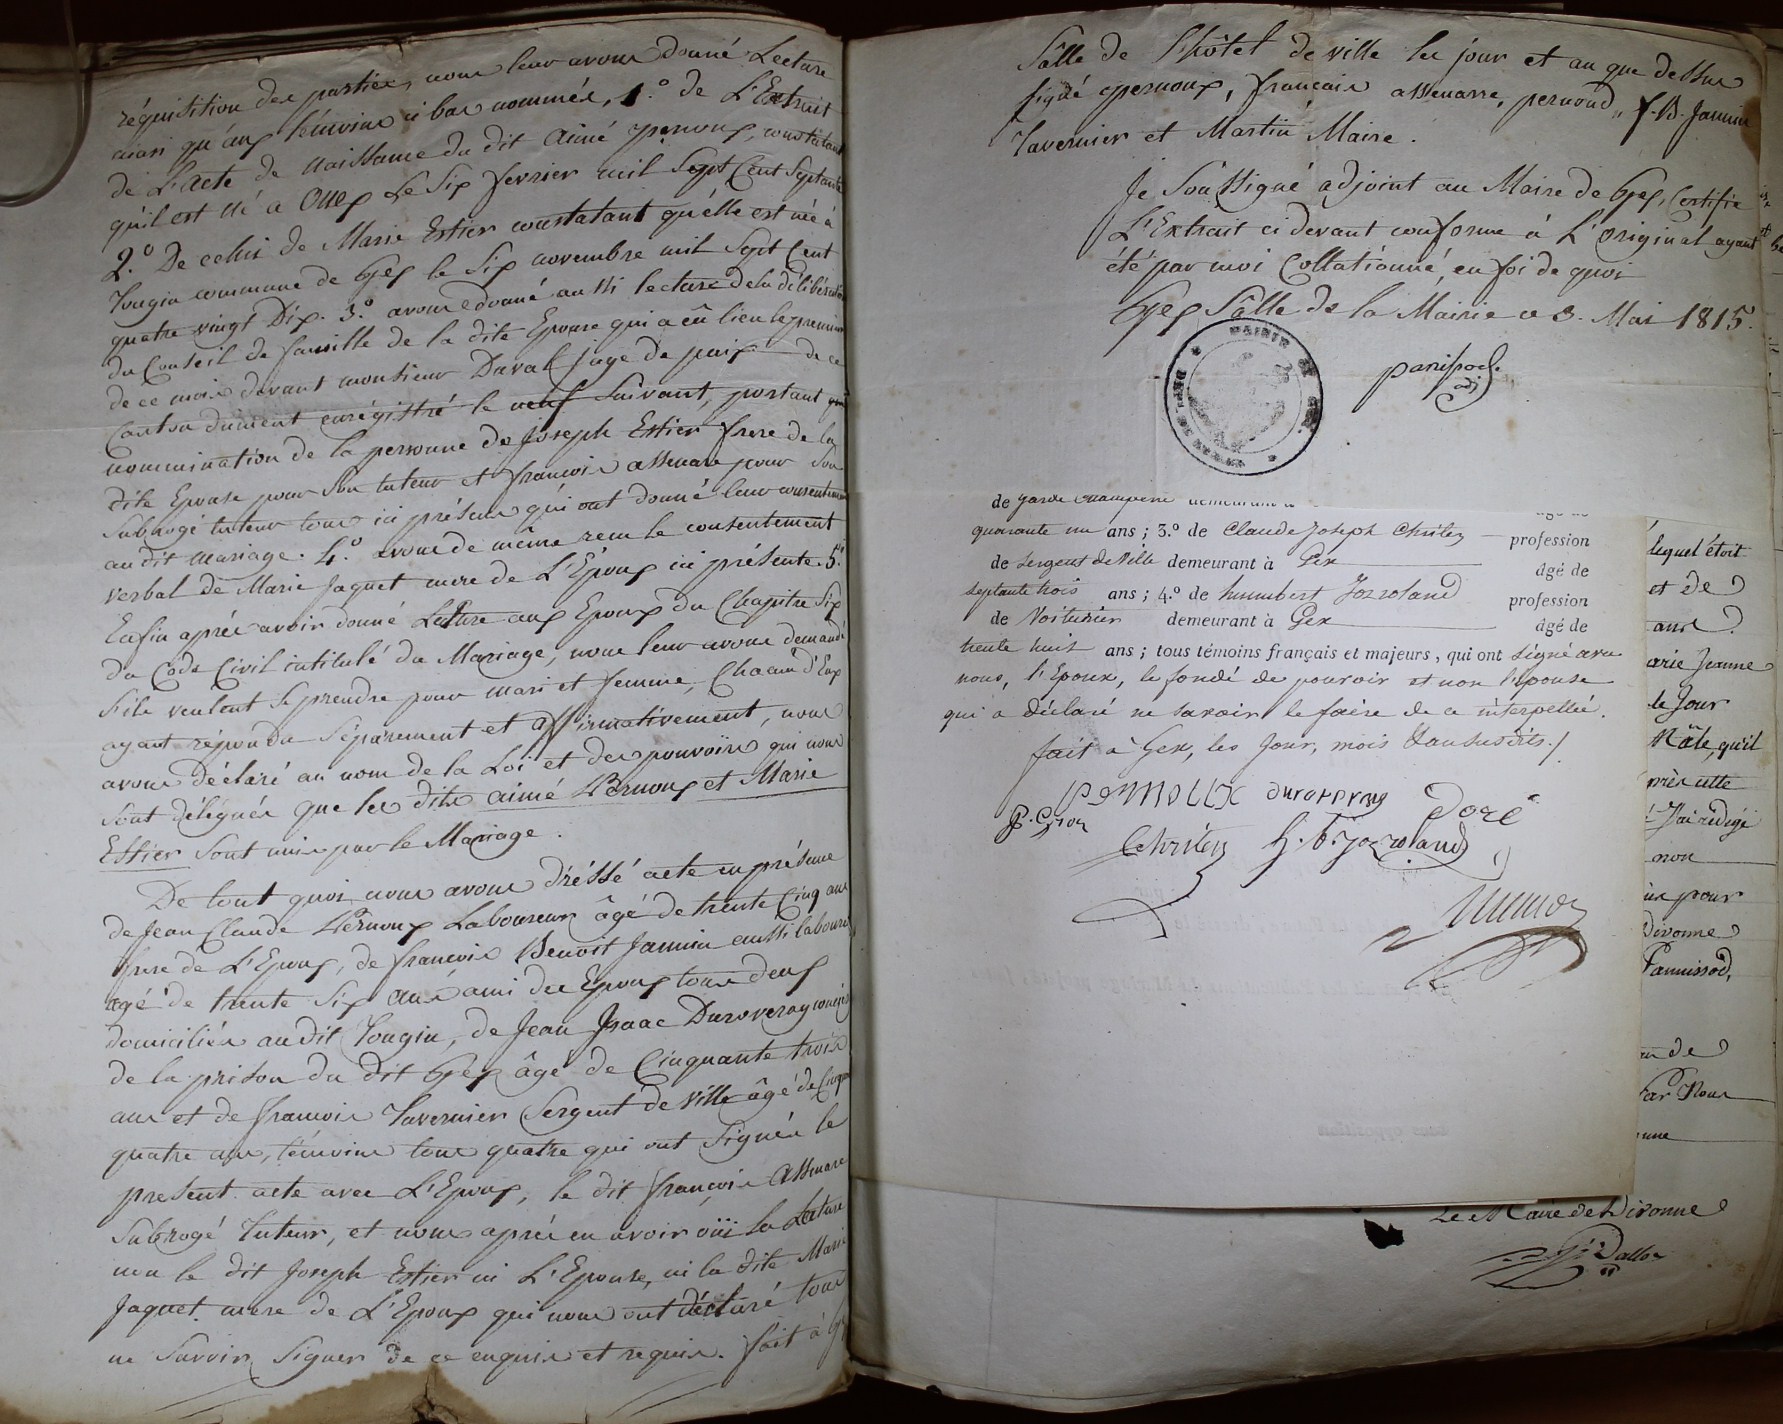 réquisition des parties, nous leur avons donné Lecture
ainsi qu'aux témoins ci bas nommés, 1.° de L'Extrait
de L'Acte de naissance du dit Aimé pernoux, constatant
qu'il est né à Ornex Le Six fevrier mil Sept Cent Septante
2.° De celui de Marie Estier constatant qu'elle est née à
Tougin commune de Gex le Six novembre mil Sept Cent
quatre vingt Dix. 3.° avons donné aussi lecture de la délibération
du Conseil de famille de la dite Epouse qui a eû lieu le premier
de ce mois devant monsieur Duval juge de paix de ce
Canton dûment enrégistré le neuf Suivant, portant
nommination de la personne de Joseph Estier frere de la
dite Epouse pour Son tuteur et françois assenare pour Son
Subrogé tuteur tous ici présens qui ont donné leur consentement
au dit mariage. 4.° avons de même reçu le consentement
verbal de Marie Jaquet mere de L'Epoux ici présente. 5.°
Enfin après avoir donné Lecture aux Epoux du Chapitre Six
du Code Civil intitulé du Mariage, nous leur avons demandé
S'ils veulent Se prendre pour mari et femme, Chacun d'Eux
ayant répondu Séparément et affirmativement, nous
avons déclaré au nom de la Loi et des pouvoirs qui nous
Sont délégués que les dits aimé Pernoux et Marie
Estier Sont unis par le Mariage.
De tout quoi nous avons dréssé acte en présence
de Jean Claude Pernoux Laboureur âgé de trente Cinq ans
frere de L'Epoux, de françois Benoit Jannin aussi laboureur
agé de trente Six ans ami des Epoux tous deux
domiciliés au dit Tougin, de Jean Isaac Duroveray concierge
de la prison du dit Gex âgé de Cinquante trois
ans et de françois Tavernier Sergent de ville âgé de Cinquante
quatre ans, témoins tous quatre qui ont Signés le
présent acte avec L'Epoux, le dit françois Assenare
Subrogé tuteur, et nous après en avoir oüi la Lecture
non le dit Joseph Estier ni L'Epouse, ni la dite Marie
Jaquet mere de L'Epoux qui nous ont déclaré tous
ne Savoir Signer de ce enquis et requis. fait à Gex
Sâlle de l'hôtel de ville les jour et an que dessus
signé pernoux, français assenarre, pernoud, f. B. Jannin
Tavernier et Martin Maire.
Je Soussigné adjoint au Maire de Gex, Certifie
L'Extrait ci devant conforme à L'original ayant
été par moi Collationné, en foi de quoi
Gex Sâlle de la Mairie ce 3. Mai 1815.
MAIRIE DE GEX
panissod.
adj
de garde champêtre demeurant à
âgé de
quarante un ans ; 3.° de Claude Joseph Chrilen profession
de Sergent de Ville demeurant à Gex âgé de
septante trois ans ; 4.° de humbert Jozroland profession
de Voiturier demeurant à Gex âgé de
trente huit ans ; tous témoins français et majeurs, qui ont signé avec
nous, l'Epoux, le fondé de pouvoir et non l'épouse
qui a déclaré ne savoir le faire de ce interpellée.
fait à Gex, les Jour, mois & an susdits./
PerNOUX Duroveray Doré
Chrilen h. b. jozroland
lequel étoit
et de
ans.
arie Jeanne
le Jour
Mâle, qu'il
près cette
J'ai rédigé
non
ur pour
Divonne
Pannissod,
de
Par Nous
Le Maire de Divonne